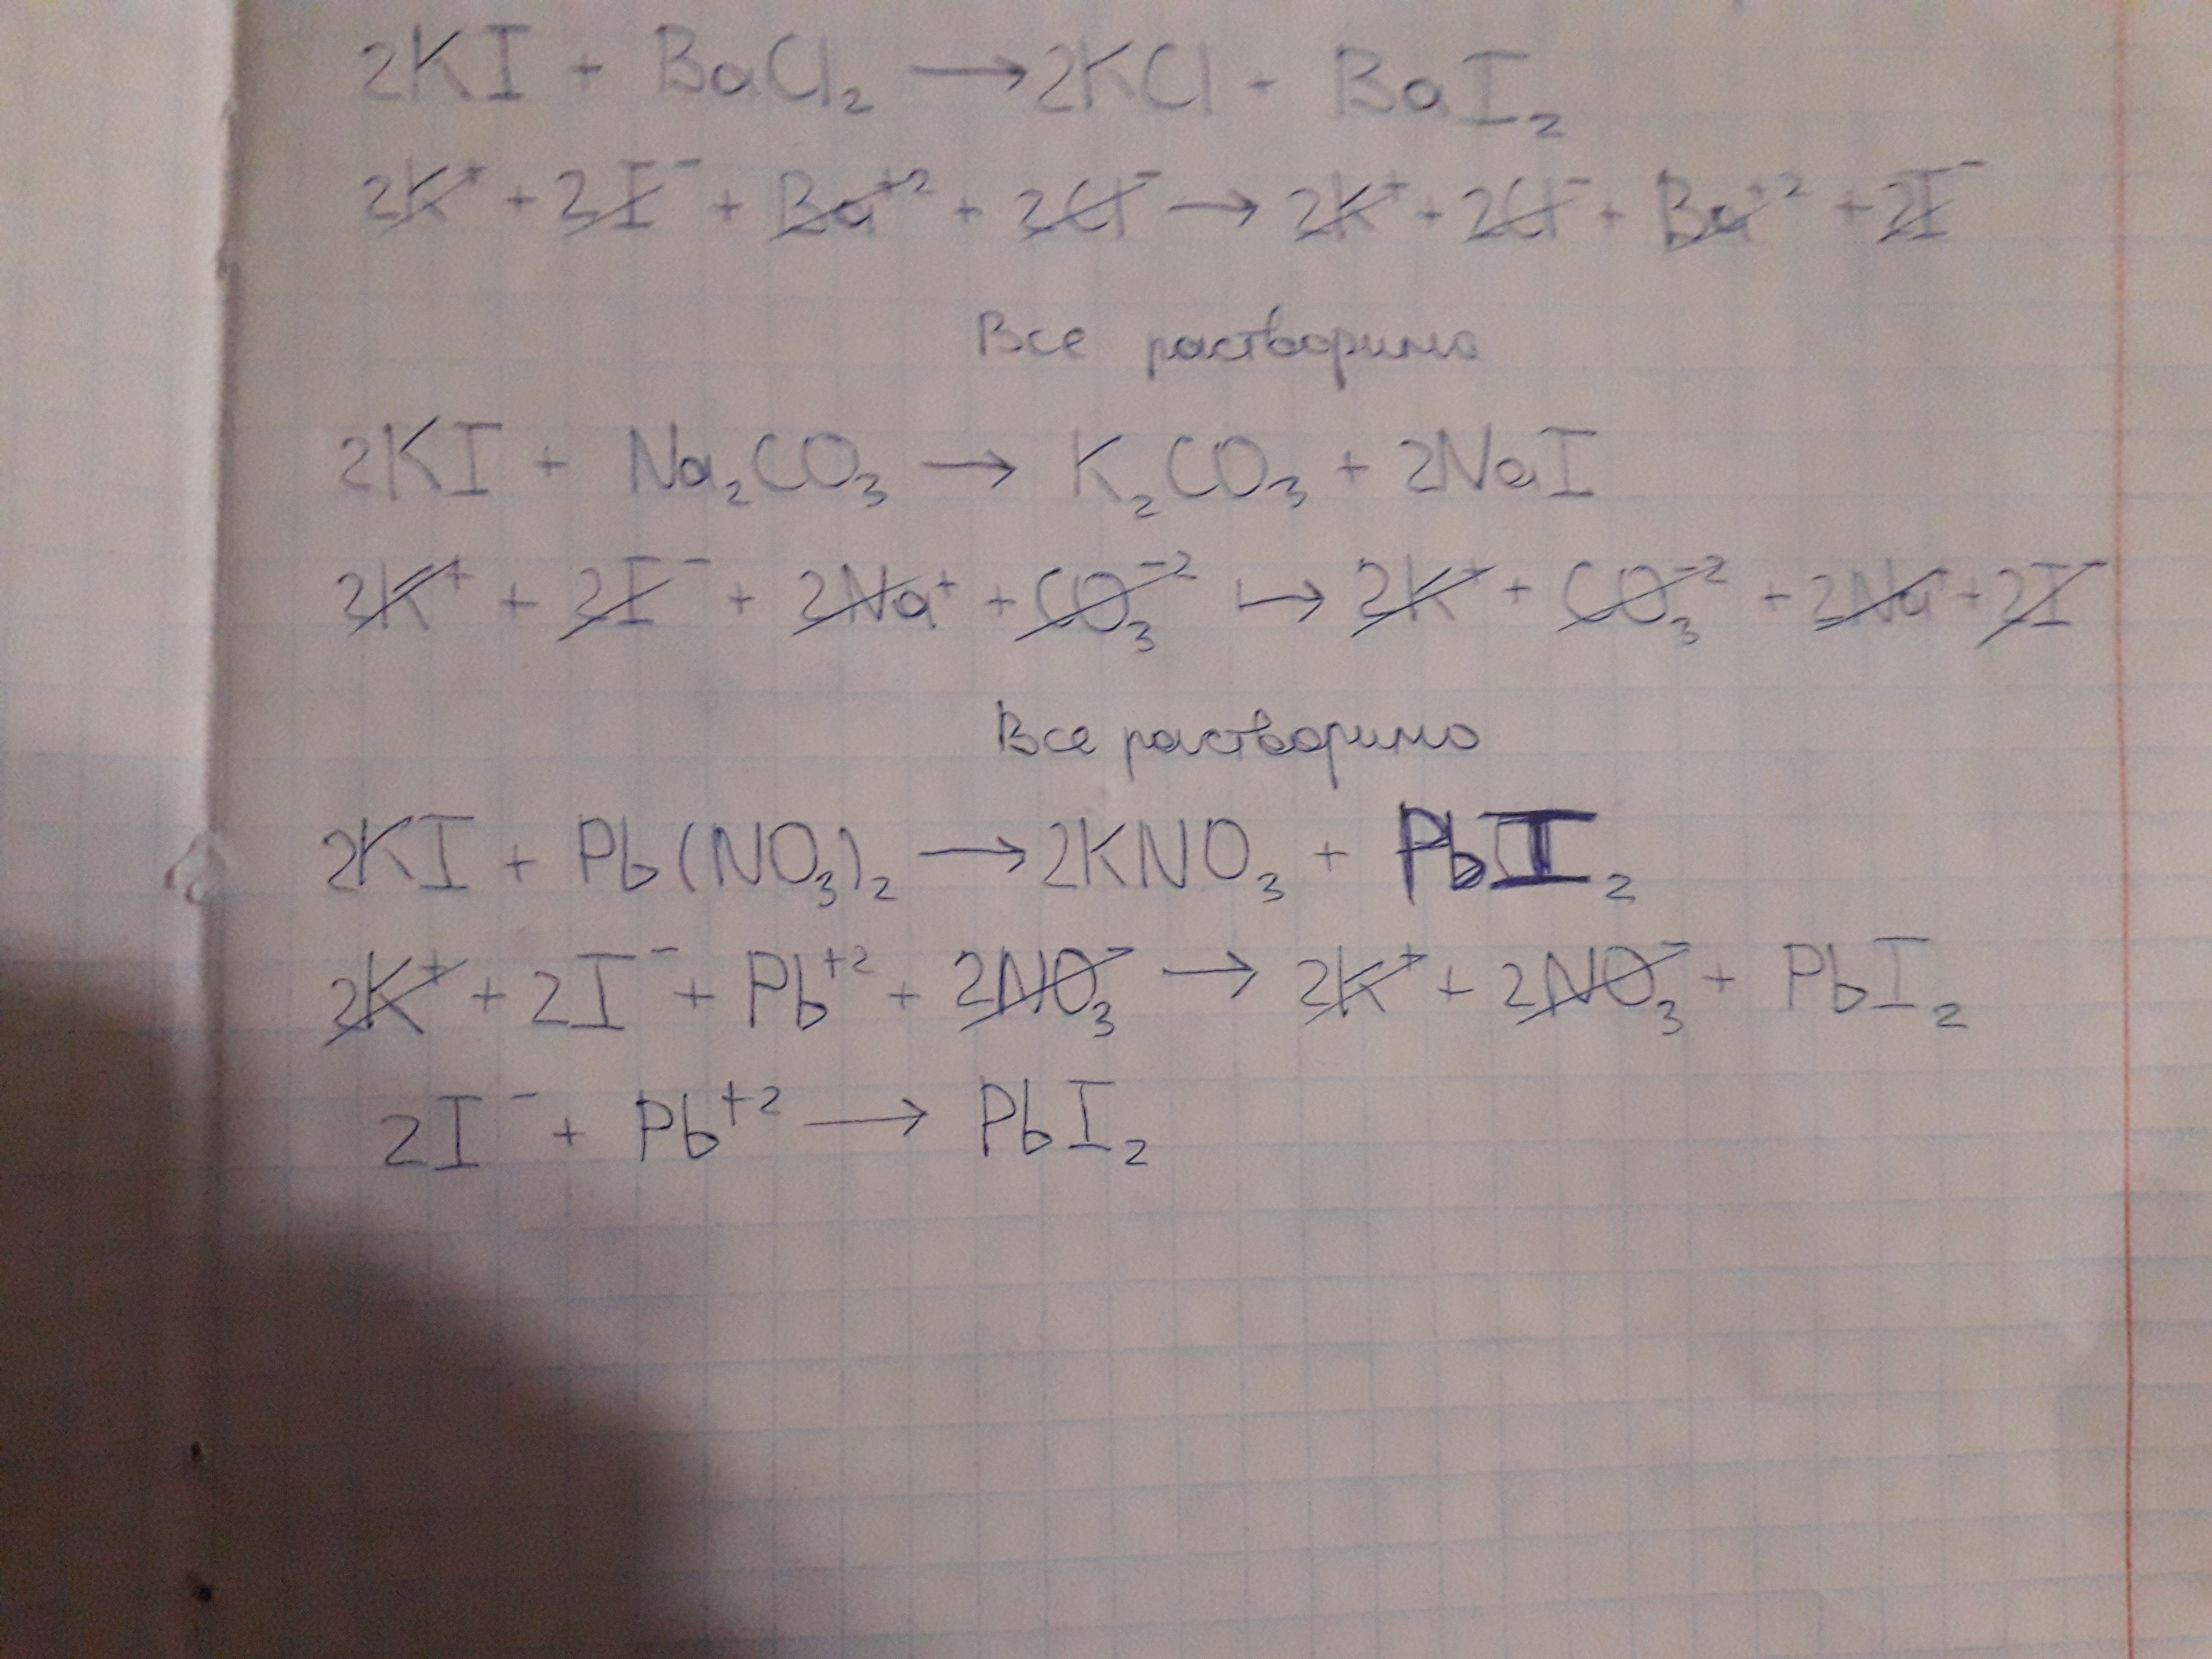 2KI + BaCl₂ → 2KCl + BaI₂
2K⁺ + 2I⁻ + Ba⁺² + 2Cl⁻ → 2K⁺ + 2Cl⁻ + Ba⁺² + 2I⁻
Все растворимо
2KI + Na₂CO₃ → K₂CO₃ + 2NaI
2K⁺ + 2I⁻ + 2Na⁺ + CO₃⁻² → 2K⁺ + CO₃⁻² + 2Na⁺ + 2I⁻
Все растворимо
2KI + Pb(NO₃)₂ → 2KNO₃ + PbI₂
2K⁺ + 2I⁻ + Pb⁺² + 2NO₃⁻ → 2K⁺ + 2NO₃⁻ + PbI₂
2I⁻ + Pb⁺² → PbI₂